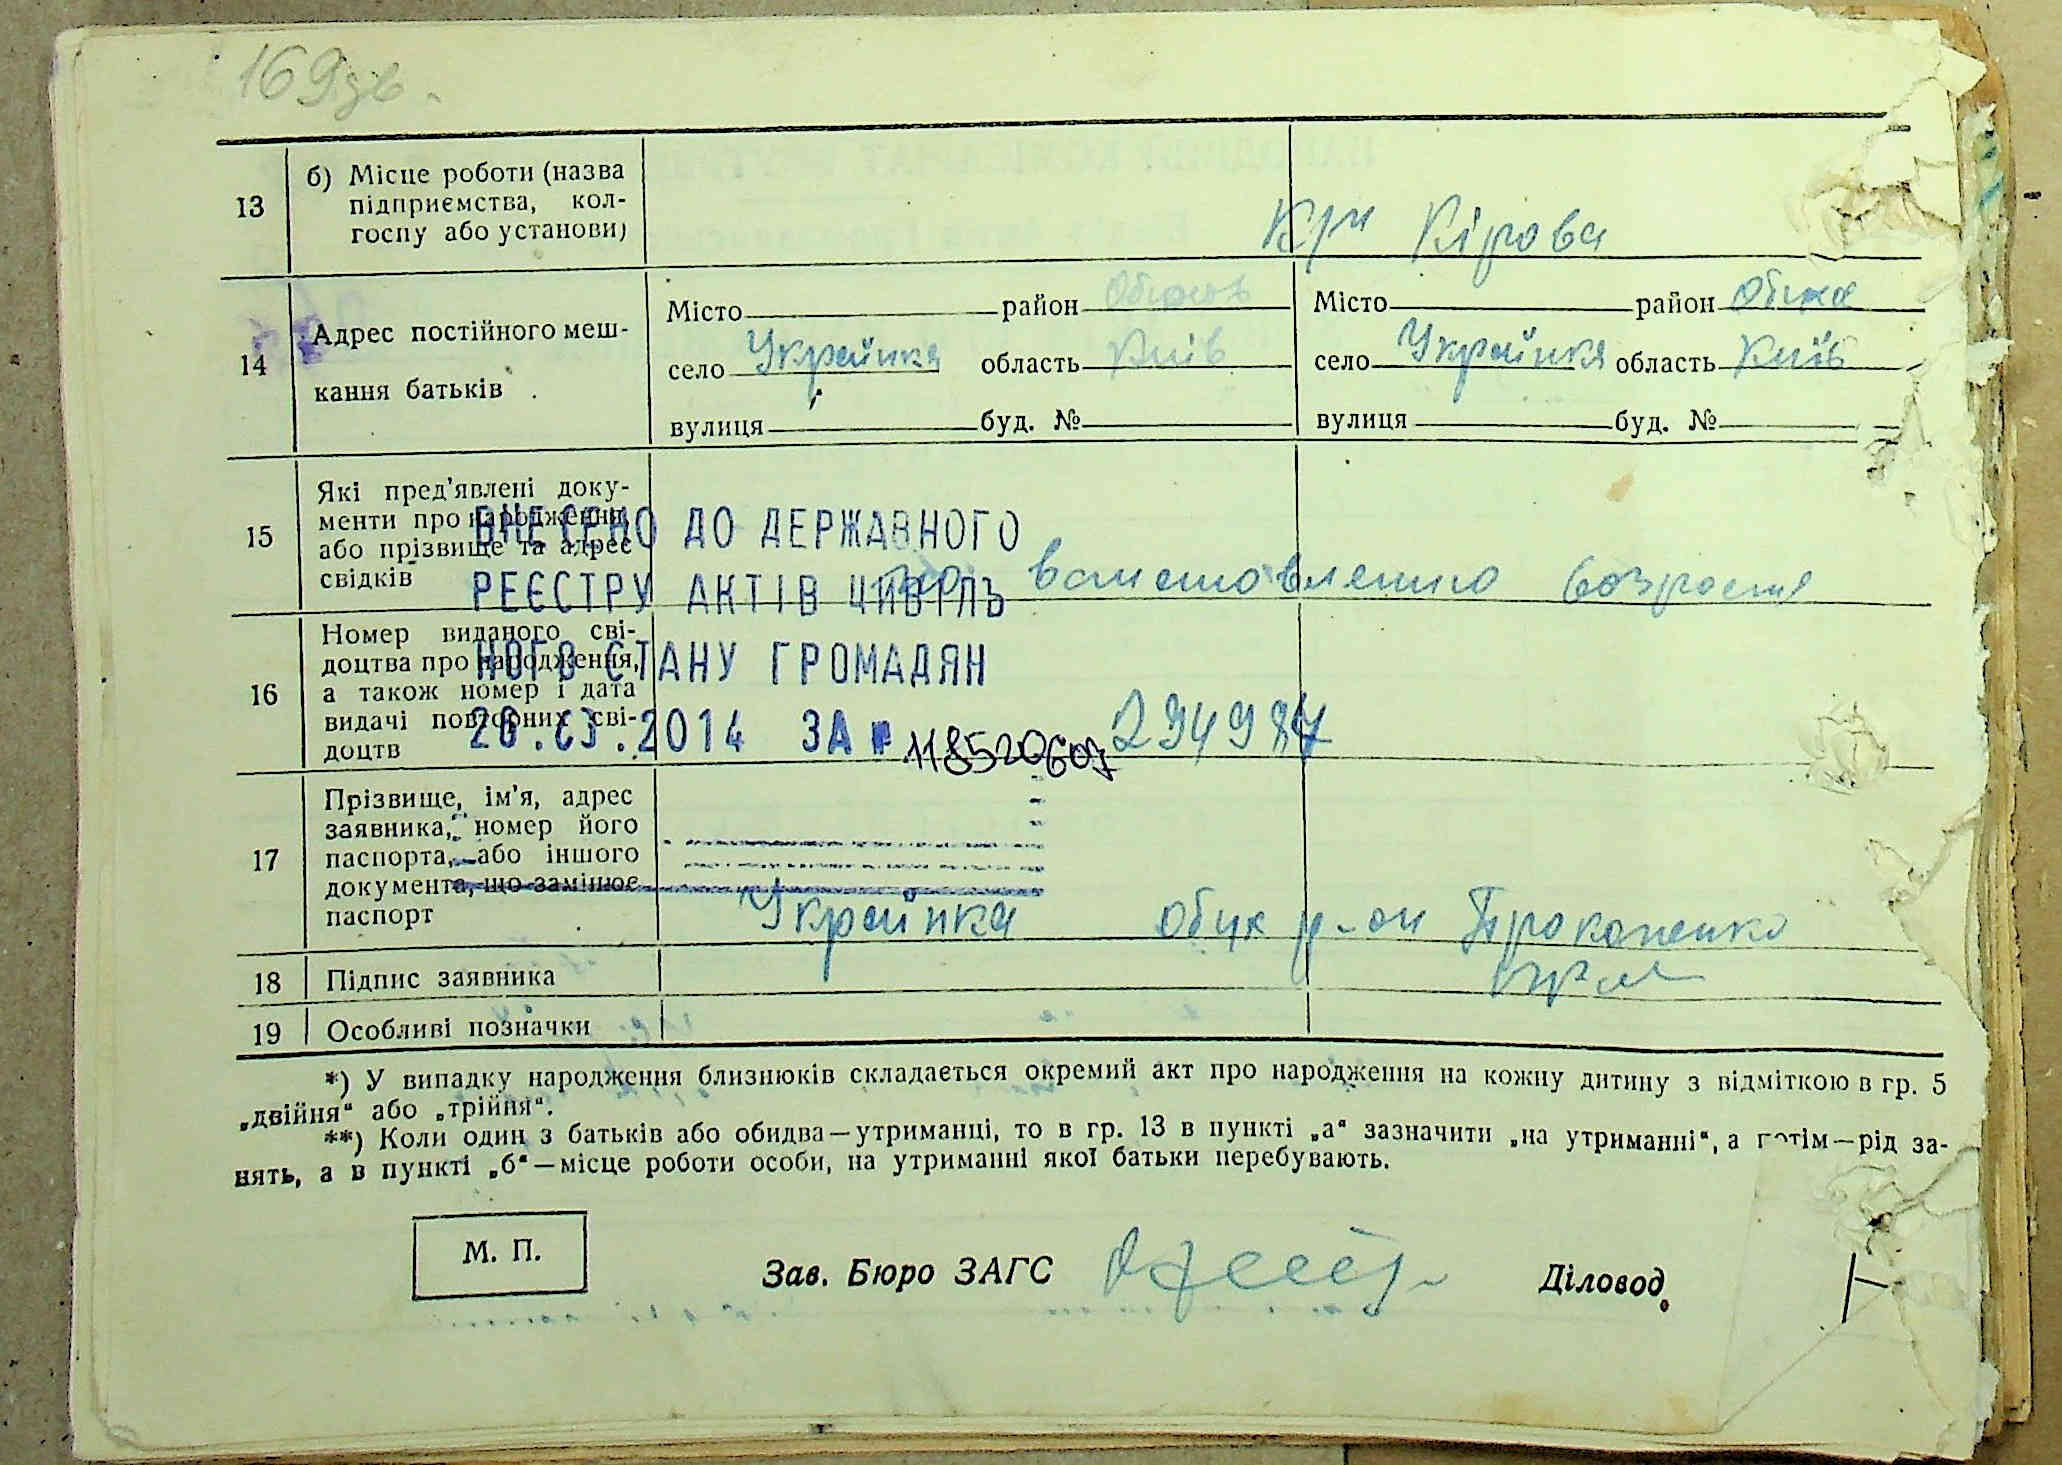 169зв.
13
б) Місце роботи (назва
підприємства, кол-
госпу або установи)
Кірова
14
Адрес постійного меш-
кання батьків
Місто район
село Українка область Київ
вулиця буд. №
Місто район Обухів
село Українка область Київ
вулиця буд. №
15
Які пред'явлені доку-
менти про народження,
або прізвище та адрес
свідків
возраста
16
Номер виданого сві-
доцтва про народження,
а також номер і дата
видачі повторних сві-
доцтв
294987
ВНЕСЕНО ДО ДЕРЖАВНОГО
РЕЄСТРУ АКТІВ ЦИВІЛЬ
НОГО СТАНУ ГРОМАДЯН
26.03.2014 ЗА № 118520607
17
Прізвище, ім'я, адрес
заявника, номер його
паспорта, або іншого
документа, що замінює
паспорт
Українка Обух р-он Прокопенко
18
Підпис заявника
19
Особливі позначки
*) У випадку народження близнюків складається окремий акт про народження на кожну дитину з відміткою в гр. 5
„двійня“ або „трійня“.
**) Коли один з батьків або обидва—утриманці, то в гр. 13 в пункті „а“ зазначити „на утриманні“, а потім—рід за-
нять, а в пункті „б“—місце роботи особи, на утриманні якої батьки перебувають.
М. П.
Зав. Бюро ЗАГС
Діловод